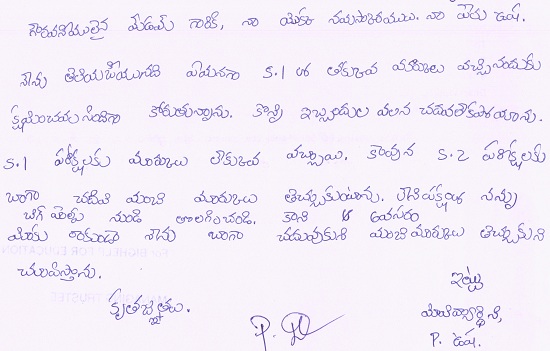 గౌరవనీయులైన మేడమ్ గారికి, నా యొక్క నమస్కారములు. నా పేరు ఉష.
నేను తెలియజేయునది ఏమనగా S.1 లో తక్కువ మార్కులు వచ్చినందుకు
క్షమించవలసిందిగా కోరుతున్నాను. కొన్ని ఇబ్బందుల వలన చదవలేకపోయాను.
S.1 పరీక్షలకు మార్కులు తక్కువ వచ్చాయి. కావున S.2 పరీక్షలకు
బాగా చదివి మంచి మార్కులు తెచ్చుకుంటాను. లేనిపక్షంలో నన్ను
బిగ్ హెల్ప్ నుండి తొలగించండి. కాని ఆ అవసరం
మీకు రాకుండా నేను బాగా చదువుకుని మంచి మార్కులు తెచ్చుకుని
చూపిస్తాను.
ఇట్లు
కృతజ్ఞతలు.
మీ విద్యార్థిని,
P. ఉష.